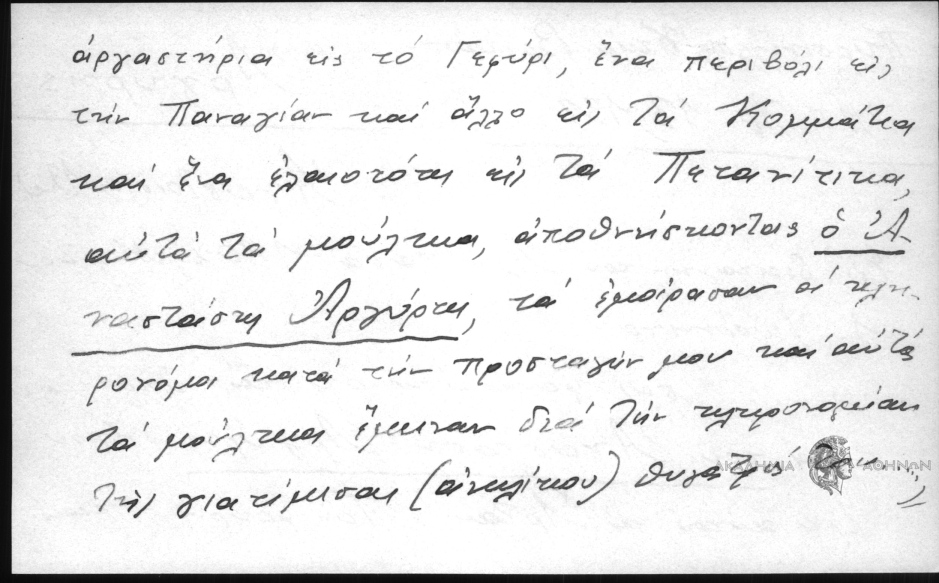 ἀργαστήρια εἰς τό Γεφύρι, ἕνα περιβόλι εἰς
τήν Παναγίαν καί ἄλλο εἰς τά Κομμάτια
καί ἕνα ἐλαιοτότη εἰς τά Πετανίτικα,
αὐτά τά μούλκια, ἀποθνήσκοντας ὁ Ἀ-
ναστάσης Ἀργύρης, τά ἐμοίρασαν οἱ κλη-
ρονόμοι κατά τήν προσταγήν μου καί αὐτά
τά μούλκια ἔμειναν διά τήν κληρονομίαν
τῆς γιατίμισας (ἀνηλίκου) θυγατρός του...»
ΑΚΑΔΗΜΙΑ ΑΘΗΝΩΝ